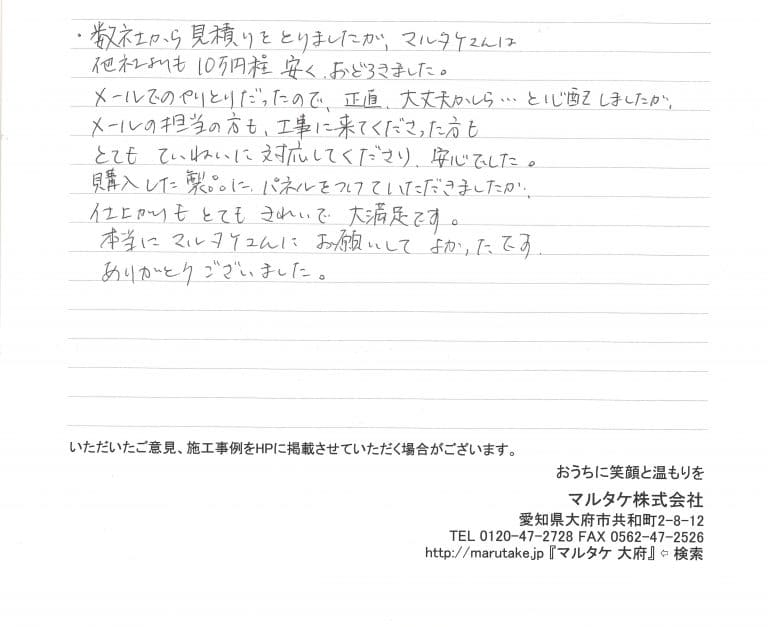 ・数社から見積りをとりましたが、マルタケさんは
他社よりも 10万円程 安く、おどろきました。
メールでのやりとりだったので、正直、大丈夫かしら…と心配しましたが、
メールの担当の方も、工事に来てくださった方も
とても ていねいに 対応してくださり、安心でした。
購入した製品に、パネルをつけていただきましたが、
仕上がりも とても きれいで 大満足です。
本当に マルタケさんに お願いして よかったです。
ありがとうございました。
いただいたご意見、施工事例をHPに掲載させていただく場合がございます。
おうちに笑顔と温もりを
マルタケ株式会社
愛知県大府市共和町2-8-12
TEL 0120-47-2728 FAX 0562-47-2526
http://marutake.jp『マルタケ 大府』⇦ 検索